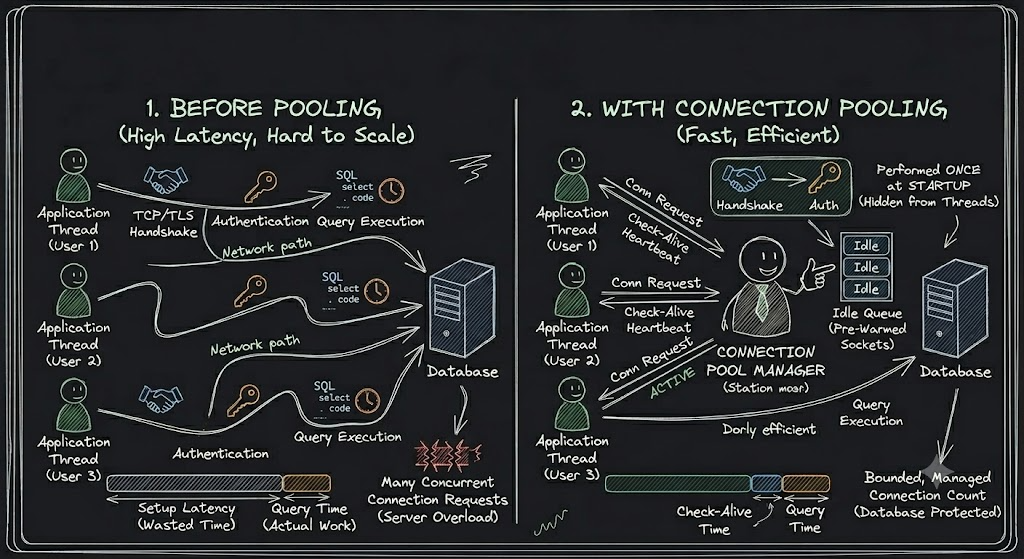 1. BEFORE POOLING
(High Latency, Hard to Scale)
Application
Thread
(User 1)
TCP/TLS
Handshake
Authentication
SQL
select
. code
Query Execution
Network path
Application
Thread
(User 2)
SQL
select
. code
Network path
Application
Thread
(User 3)
Authentication
SQL
select
. code
Query Execution
Database
Many Concurrent
Connection Requests
(Server Overload)
Setup Latency
(Wasted Time)
Query Time
(Actual Work)
2. WITH CONNECTION POOLING
(Fast, Efficient)
Application
Thread
(User 1)
Conn Request
Check-Alive
Heartbeat
Handshake
Auth
Performed ONCE
at STARTUP
(Hidden from Threads)
Idle
Idle
Idle
Idle Queue
(Pre-Warmed
Sockets)
Application
Thread
(User 2)
Conn Request
Check-Alive
Heartbeat
CONNECTION
POOL MANAGER
(Station
Database
Application
Thread
(User 3)
Conn Request
ACTIVE
Dorly efficient
Query
Execution
Check-Alive
Time
Query
Time
Bounded, Managed
Connection Count
(Database Protected)